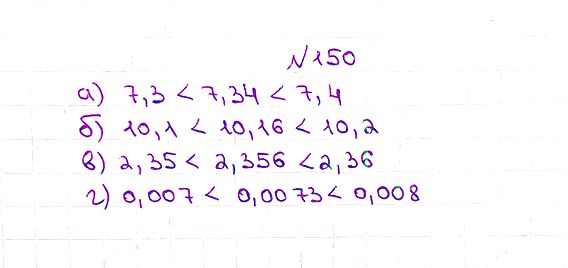 №150
а) 7,3 < 7,34 < 7,4
б) 10,1 < 10,16 < 10,2
в) 2,35 < 2,356 < 2,36
г) 0,007 < 0,0073 < 0,008